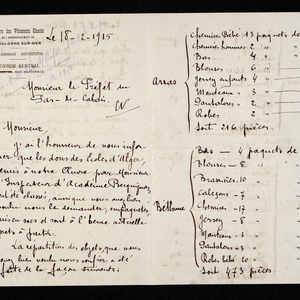 des Vêtements Chauds
BOULOGNE-SUR-MER
OUVROIR CENTRAL
Le 18-2-1915
Monsieur le Préfet du
Pas-de-Calais.
Monsieur
J'ai l'honneur de vous infor-
mer que les dons des Ecoles d'Alger,
venus à notre Œuvre par Monsieur
l'Inspecteur d'Académie
ont été classés, ainsi que vous avez
bien voulu nous le demander, empaquetés,
mis en sacs et sont à l'heure actuelle
prêts à partir.
La répartition des objets, que vous
avez bien voulu nous confier a été
faite de la façon suivante:
Arras
Chemises Bébé 13 paquets de
Chemises hommes 2 "
Bas — 4 "
Blouses — 6 "
Jersey enfants 4 —
Manteaux — 3 "
Pantalons — 2 "
Robes — 2 "
Soit 216 pièces.
Béthune
Bas — 4 paquets de
Blouses — 8 "
Brassières — 10 "
Caleçons — 7 "
Chemises — 17 "
Jersey — 8 "
Manteaux — 3 "
Pantalons — 3 "
Robes bébé 10 "
Soit 473 pièces